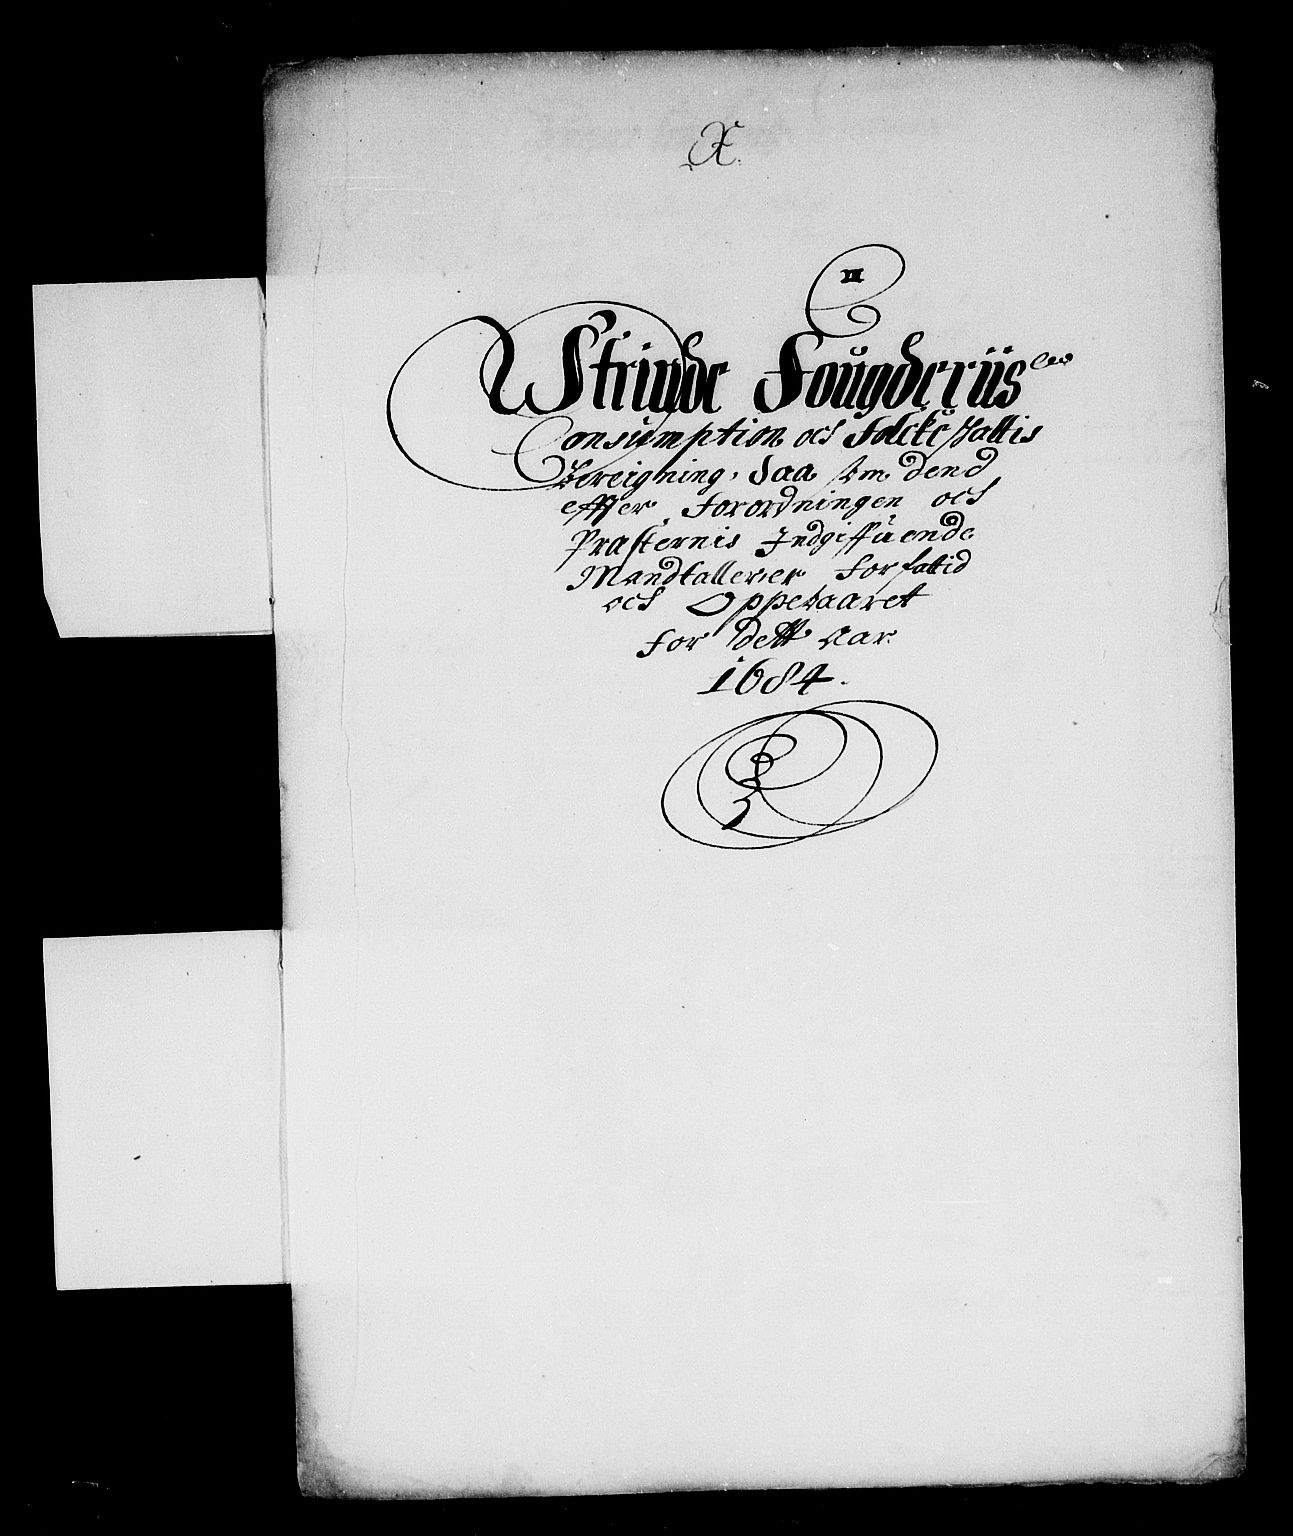 X.
Strinde Fougderiis
Consumption och Folcke Skattis
Bereigning, Saa som dend
effter Forordningen och
Præsternis Indgiffuende
Mandtaller, er Forfattid
och Oppebaaret
for dett Aar
1684.